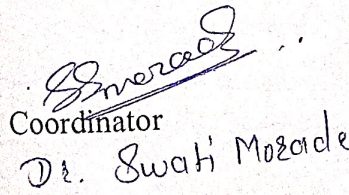 SSmorade
Coordinator
Dr. Swati Morade